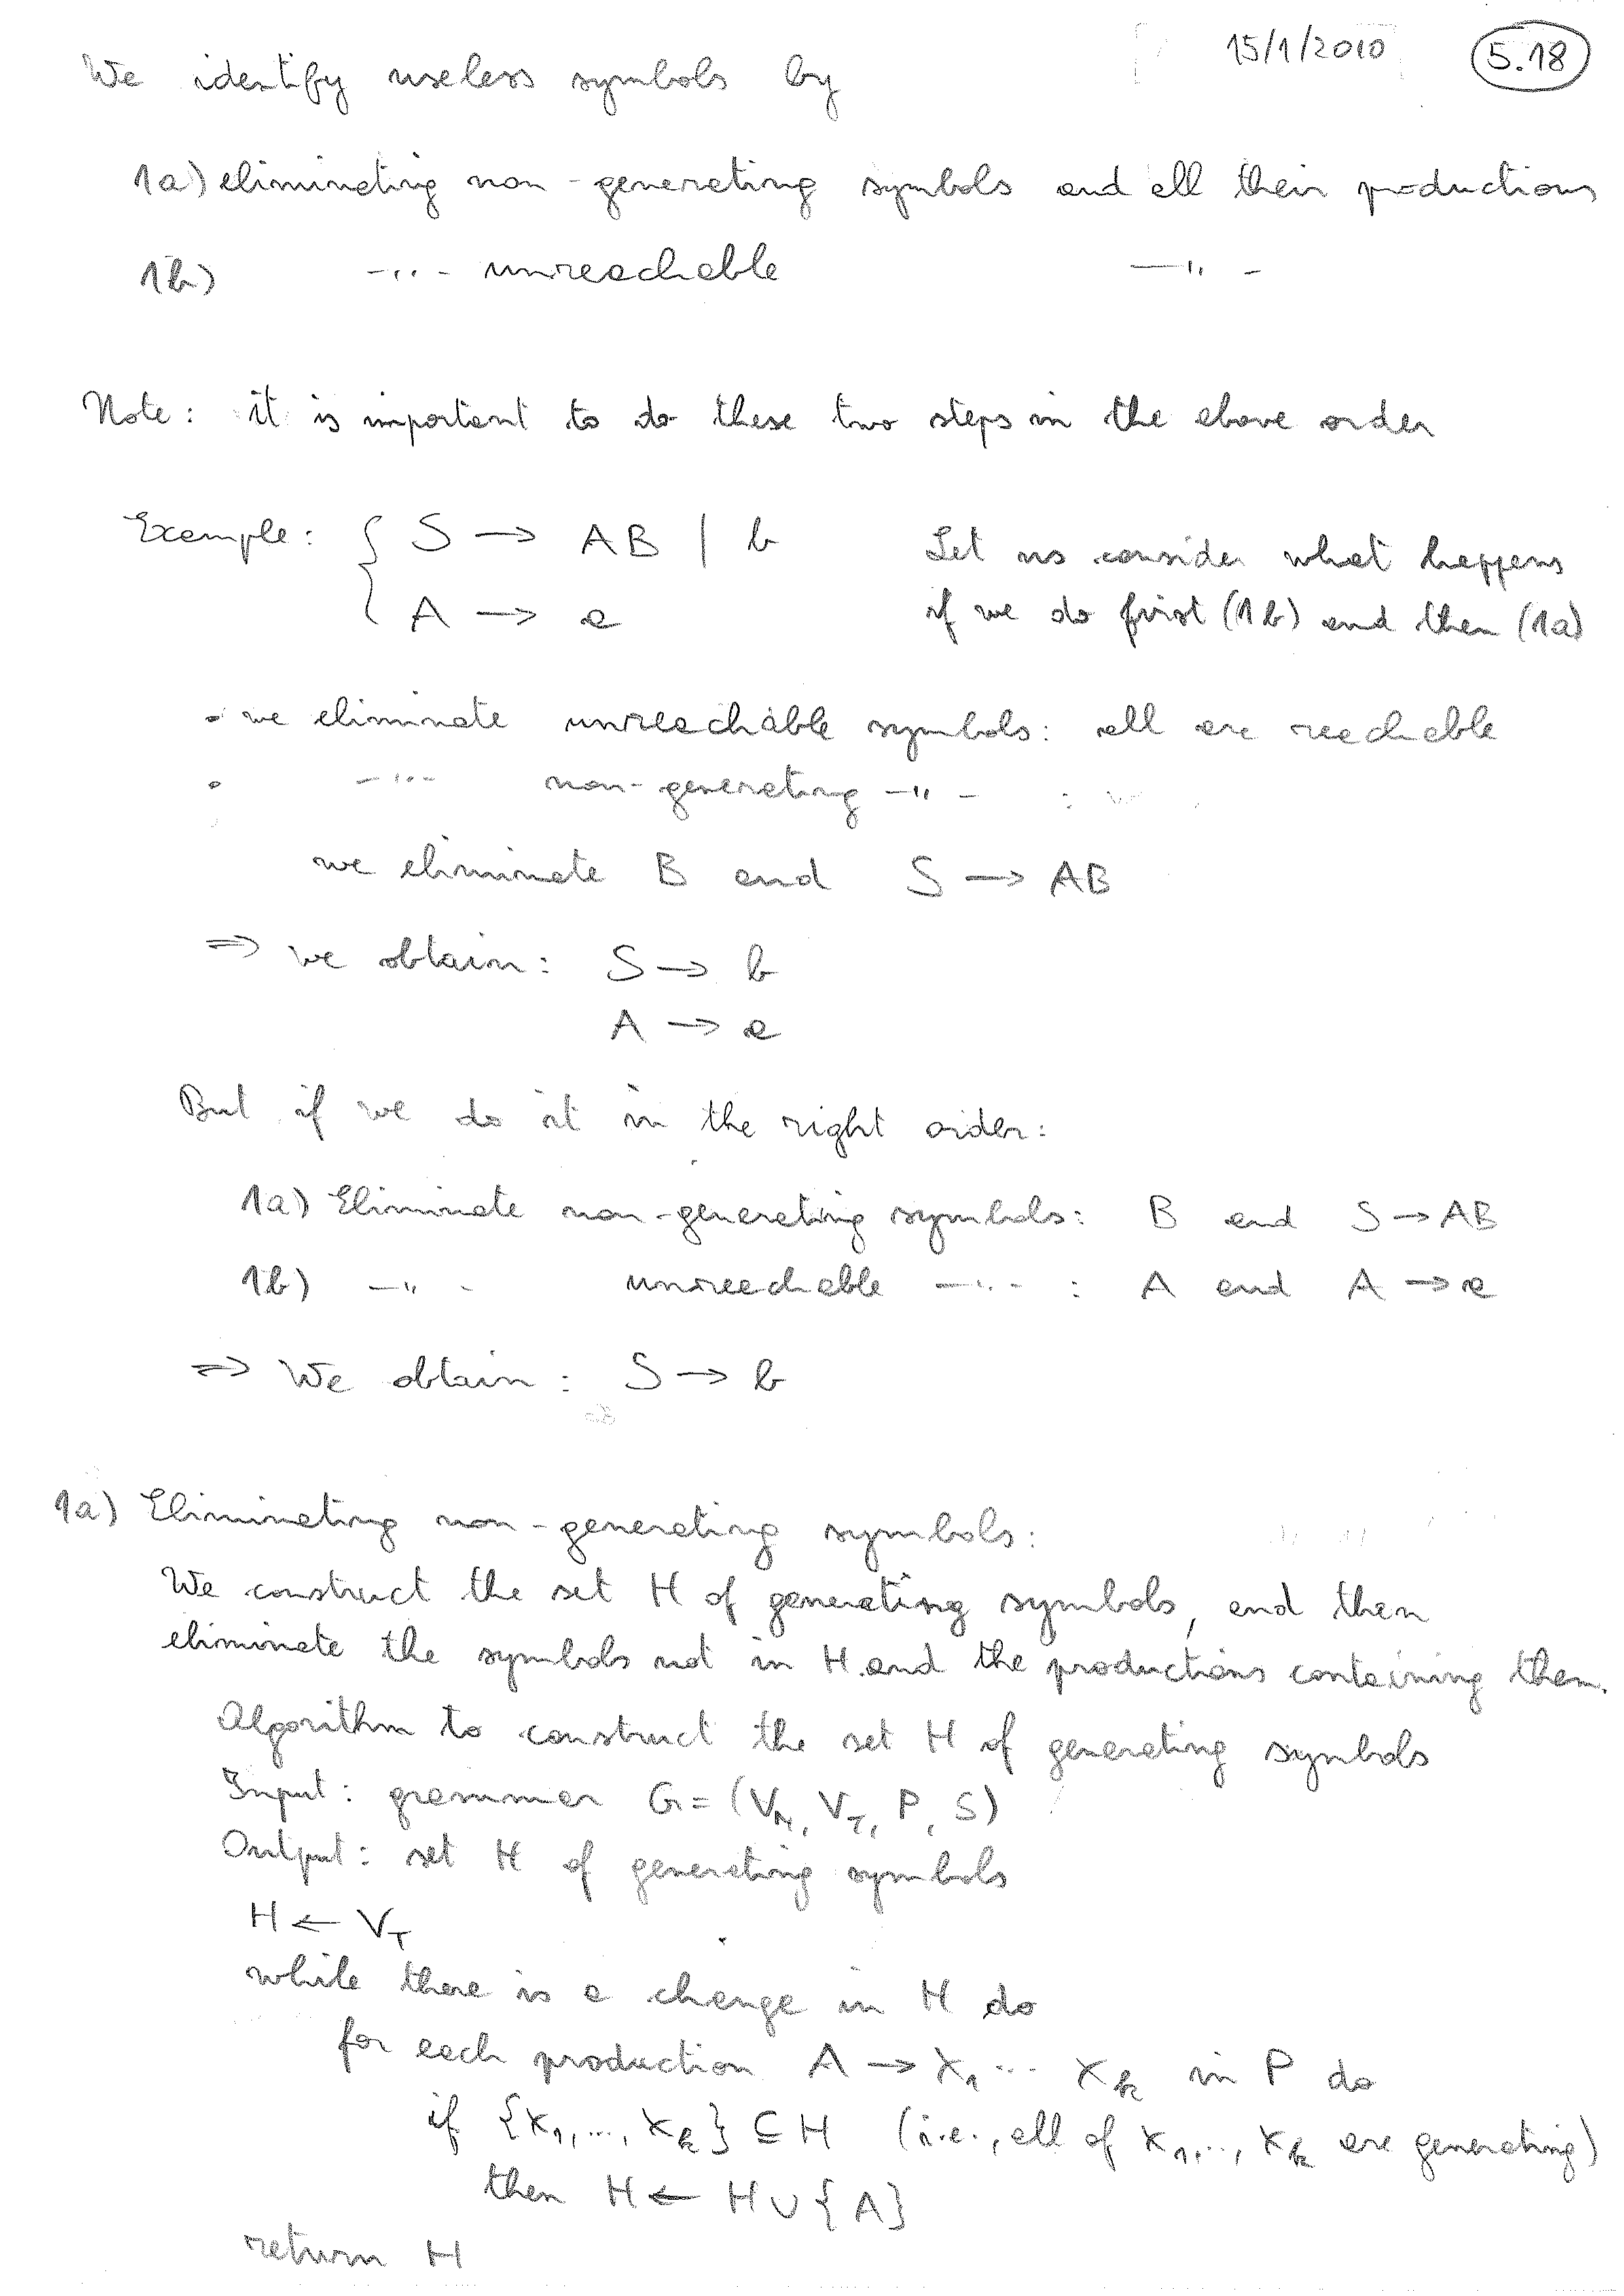 15/1/2010 5.18
We identify useless symbols by
1a) eliminating non-generating symbols and all their productions
1b) -"- unreachable -"-
Note: it is important to do these two steps in the above order
Example: { S → AB | b Let us consider what happens
A → a if we do first (1b) and then (1a)
• we eliminate unreachable symbols: all are reachable
• -"- non-generating -"- :
we eliminate B and S → AB
⇒ we obtain: S → b
A → a
But if we do it in the right order:
1a) Eliminate non-generating symbols: B and S → AB
1b) -"- unreachable -"- : A and A → a
⇒ We obtain: S → b
1a) Eliminating non-generating symbols:
We construct the set H of generating symbols, and then
eliminate the symbols not in H and the productions containing them.
Algorithm to construct the set H of generating symbols
Input: grammar G = (V_N, V_T, P, S)
Output: set H of generating symbols
H ← V_T
while there is a change in H do
for each production A → X₁ ... X_k in P do
if {X₁, ..., X_k} ⊆ H (i.e., all of X₁, .., X_k are generating)
then H ← H ∪ {A}
return H